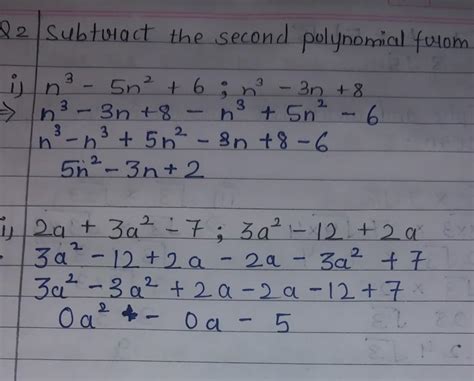 Q2 Subtract the second polynomial from
i) n³ - 5n² + 6 ; n³ - 3n + 8
⇒ n³ - 3n + 8 - n³ + 5n² - 6
n³ - n³ + 5n² - 3n + 8 - 6
5n² - 3n + 2
i) 2a + 3a² - 7 ; 3a² - 12 + 2a
3a² - 12 + 2a - 2a - 3a² + 7
3a² - 3a² + 2a - 2a - 12 + 7
0a² - 0a - 5